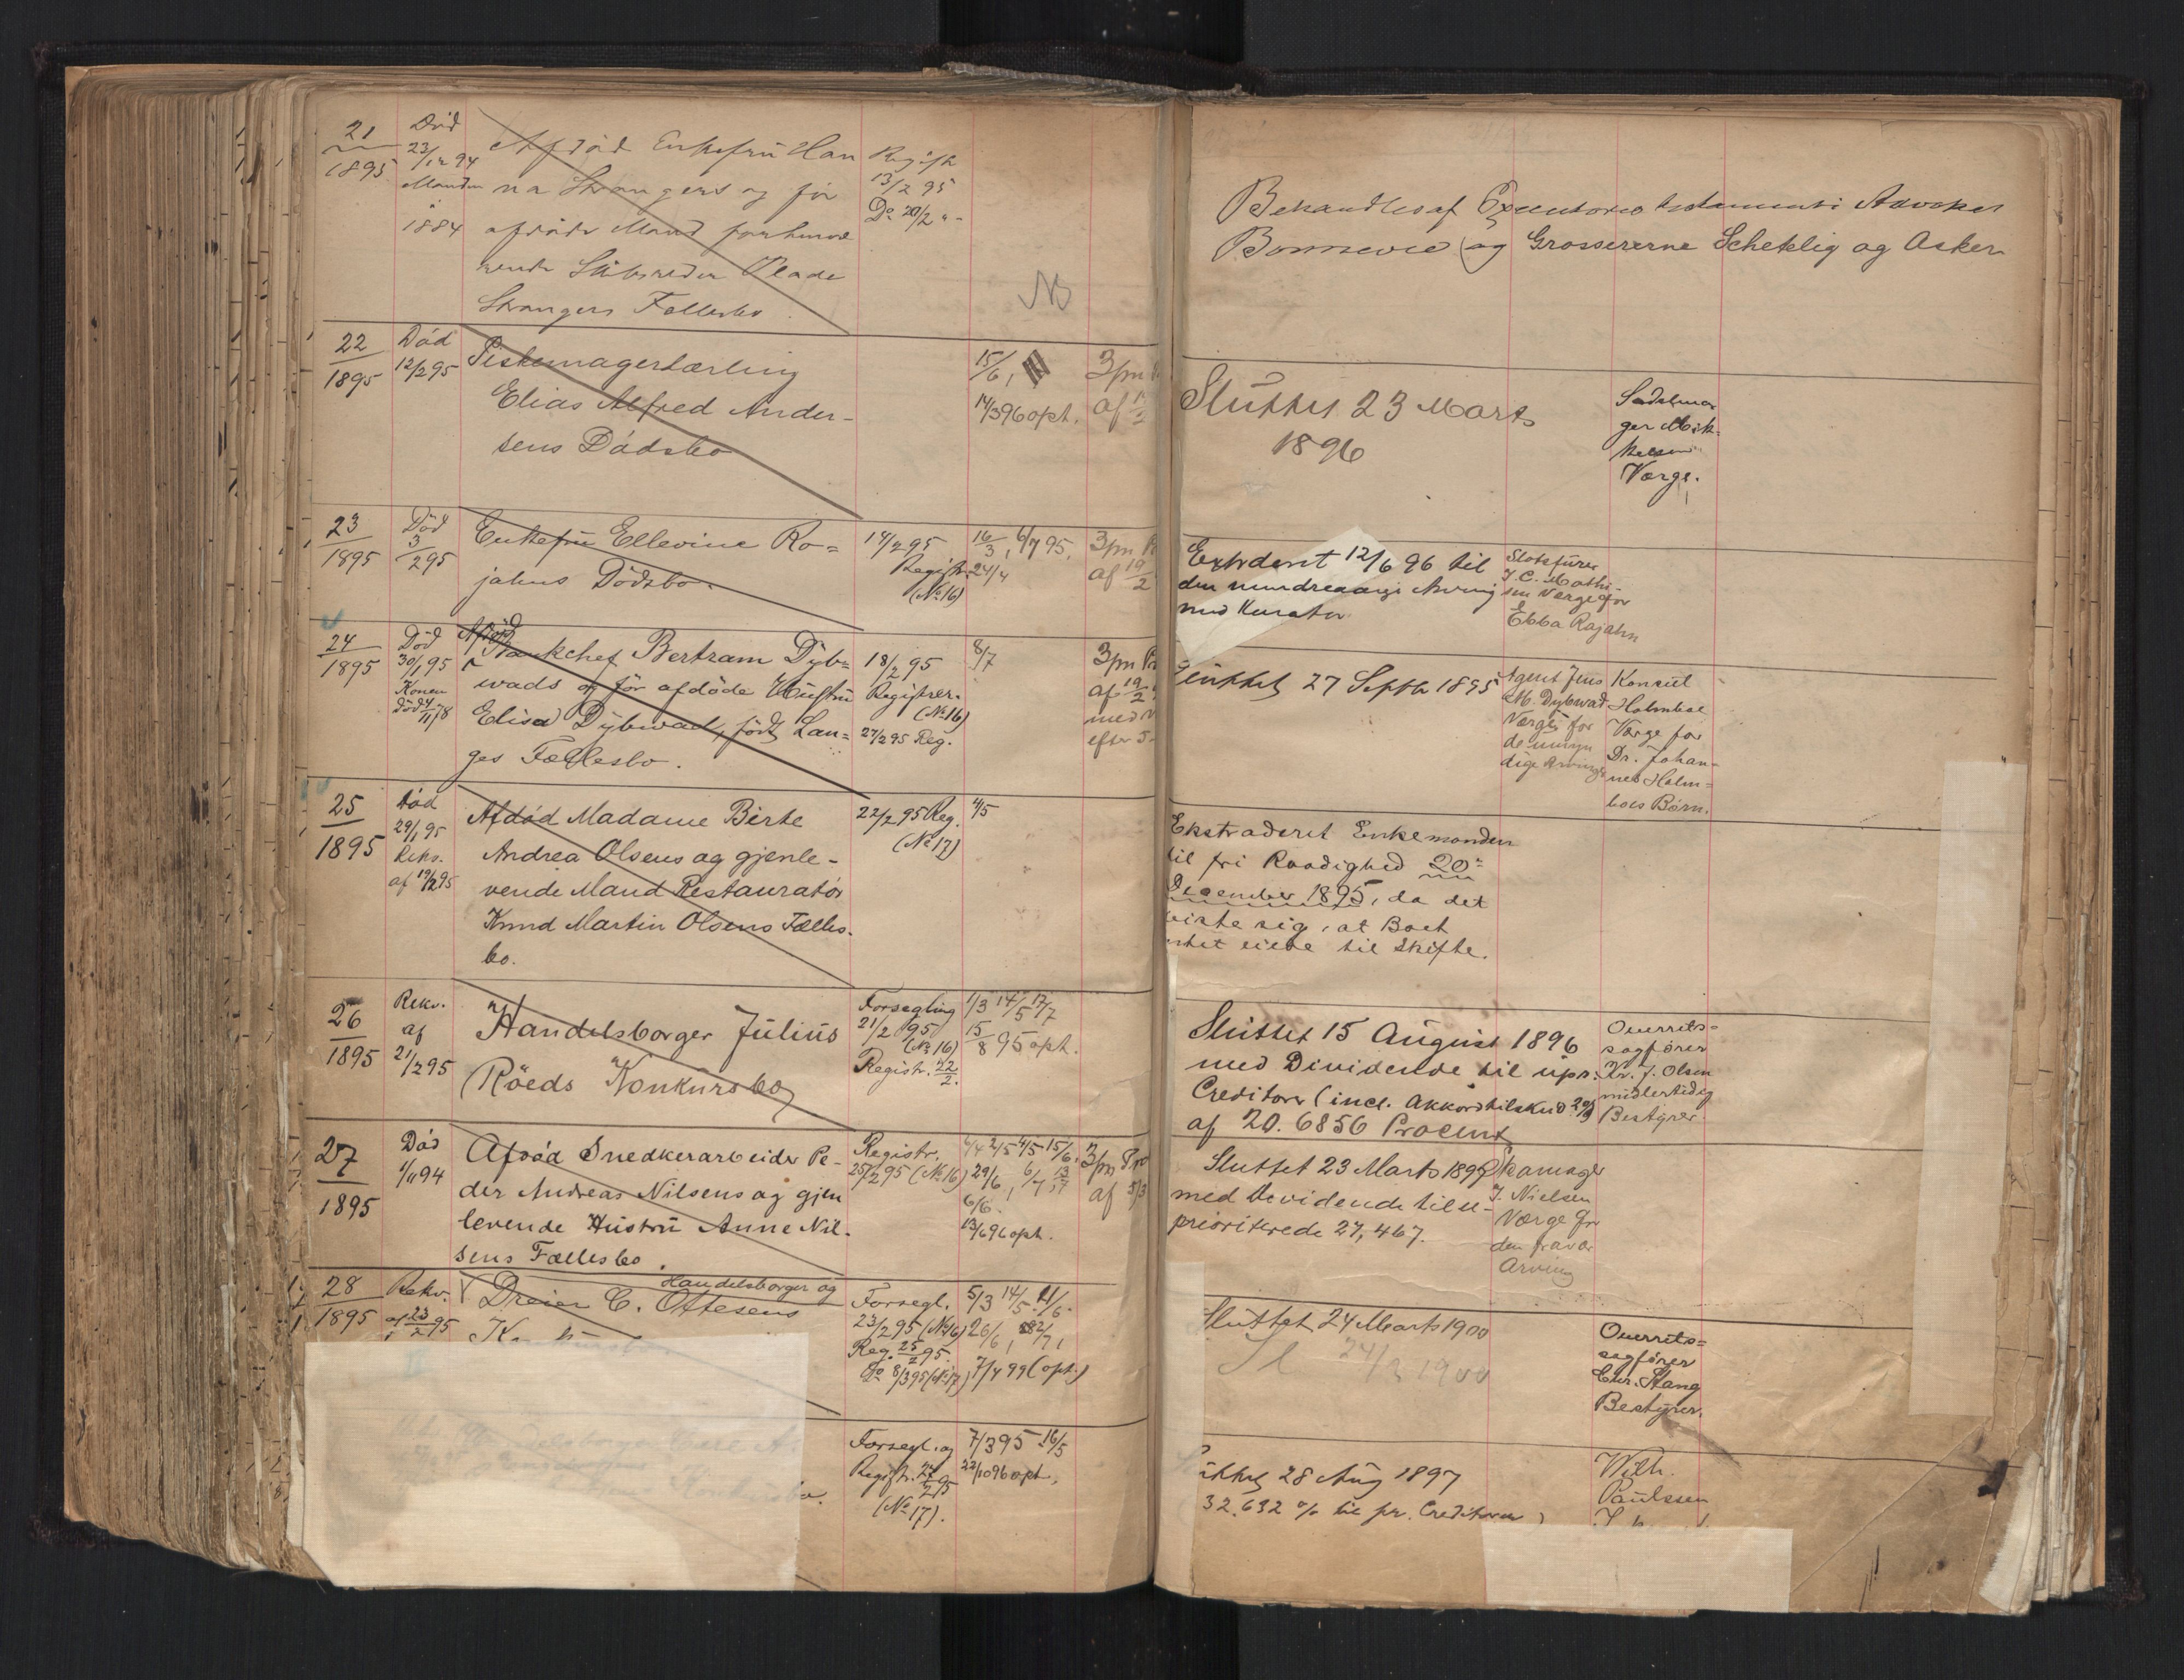 21
1895
Död
23/12 94
Manden
1884
Afdöd Enkefru Han
na Strangers og før
afdöde Mand forhenvæ
rende Skibsreder Plade
Strangers Fællesbo.
Regist
13/2 95
Do 20/2 "-
NB
Behandles af Executores testamenti Advokat
Bonnevie og Grossererne Schetelig og Asker
22
1895
Död
12/2 95
Piskemagerlærling
Elias Alfred Ander-
sens Dödsbo
15/6,
14/3 96 oph.
3pm
af
Sluttet 23 Marts
1896
Sadelma
ger Mik-
kelsen
Værge.
23
1895
Död
3/2 95
Enkefru Ellevine Ro=
jahns Dödsbo.
14/2 95
Registr.
(No 16)
16/3, 6/7 95,
24/4
3pm
af 19/2
Extraderet 12/6 96 til
den mindreaarige Arving
med Kurator
Slotsfürer
J. C. Mathi
sen Værge for
Ebba Rojahn
24
1895
Död
30/1 95
Konen
död 4/11 78
Afdöd
Bankchef Bertram Dyb=
wads og för afdöde Hustru
Elisa Dybwad, födt Lan=
ges Fællesbo.
18/2 95
Registrer.
(No 16)
27/2 95 Reg.
8/7
3pm Pr
af 19/2
med
efter
Sluttet 27 Septbr 1895
Agent Jens
M. Dybwad
Værge for
de umyn
dige Arvinge
Konsul
Holmboe
Værge for
Dr. Johan-
nes Holm=
boes Børn.
25
1895
Död
29/1 95
Rekv.
af 19/2 95
Afdöd Madame Birte
Andrea Olsens og gjenle-
vende Mand Restauratör
Knud Martin Olsens Fælles-
bo.
22/2 95 Reg.
(No 17)
4/5
Ekstraderet Enkemanden
til fri Raadighed 20de
December 1895, da det
viste sig, at Boet
intet eiede til Skifte.
26
1895
Rekv.
af
21/2 95
Handelsborger Julius
Röeds Konkursbo
Forsegling
21/2 95
(No 16)
Registr. 22/2.
1/3 14/5 17/7
15/8 95 oph.
Sluttet 15 August 1896
med Dividende til upr.
Creditorer (incl. Akkordtilskud
af 20.6856 Procent
Overrets=
sagfører
Kr. J. Olsen
midlertidig
Bestyrer
27
1895
Död
1/11 94
Afdöd Snedkerarbeider Pe-
der Andreas Nilsens og gjen
levende Hustru Anne Nil-
sens Fællesbo.
Registr.
25/2 95 (No 16)
4/4 2/5 4/5 15/6.
29/6, 6/7, 13/7
6/6.
13/6 96 oph.
3pm Pro
af 5/3
Sluttet 23 Marts 1897
med Devidende til u-
prioriterede 27,467.
Skomager
J. Nielsen
Værge for
den fravær
Arving
28
1895
Rekv.
af 23/2 95
Handelsborger og
Dreier C. Ottesens
Forsegl.
23/2 95 (No 16)
Reg. 25/2 95.
Do 8/3 95 (No 17)
5/3 14/5. 11/6.
26/6,
7/4 99 (oph.)
Sluttet 24 Marts 1900
Sl 24/3 1900
Overrets=
sagfører
Chr. Stang
Bestyrer.
Forsegl. og
Registr. 27/2 95
(No 17).
7/3 95 16/5
22/10 96 oph.
Sluttet 28 Aug 1897
32.632 % til pr. Creditorer
Wilh.
Paulssen